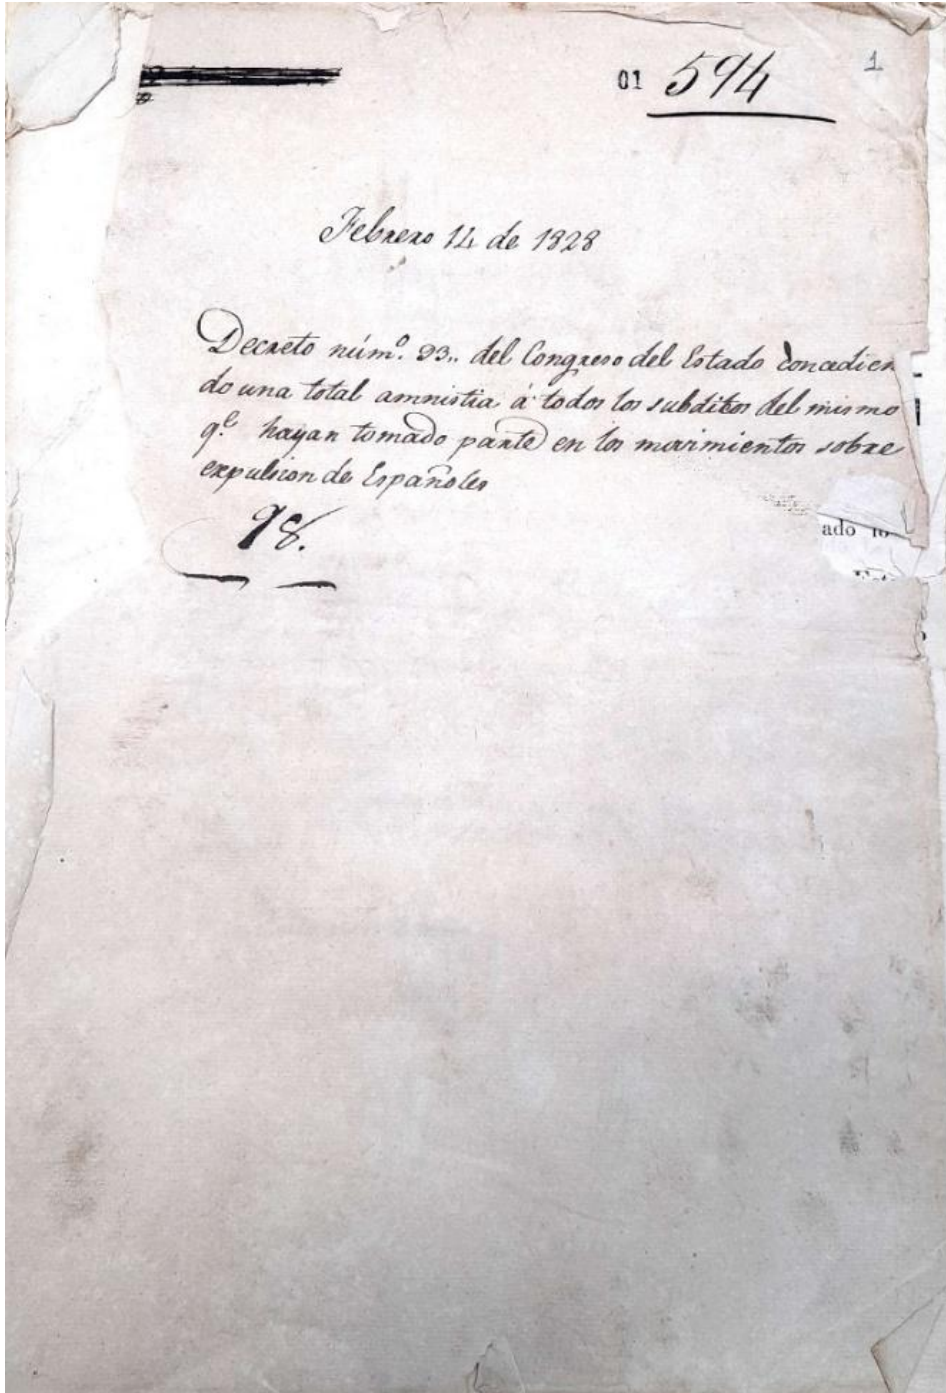 01 594 1
Febrero 14 de 1828
Decreto núm.º 93.. del Congreso del Estado concedien
do una total amnistia á todos los subditos del mismo
q.e hayan tomado parte en los movimientos sobre
expulsion de Españoles
98.
ado lo